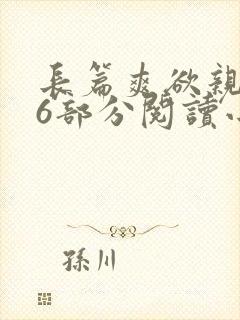 長篇爽欲親
6部分閱讀
孫川